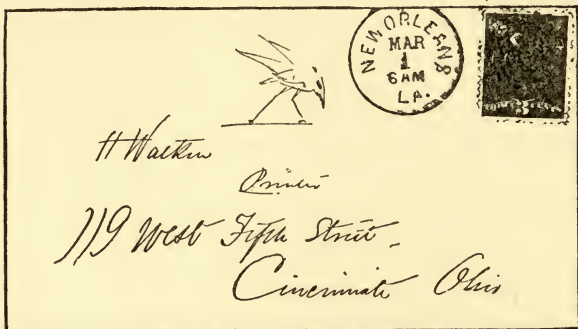 NEW ORLEANS
MAR
1
6 AM
LA.
3
H Watkin
Printer
119 West Fifth Street.
Cincinnati Ohio